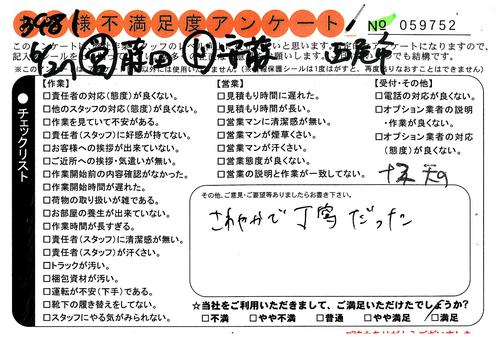 様不満足度アンケート
№ 059752
【作業】
□責任者の対応(態度)が良くない。
□他のスタッフの対応(態度)が良くない。
□作業を見ていて不安がある。
□責任者(スタッフ)に好感が持てない。
□お客様への挨拶が出来ていない。
□ご近所への挨拶・気遣いが無い。
□作業開始前の内容確認がなかった。
□作業開始時間が遅れた。
□荷物の取り扱いが雑である。
□お部屋の養生が出来ていない。
□作業時間が長すぎる。
□責任者(スタッフ)に清潔感が無い。
□責任者(スタッフ)が汗くさい。
□トラックが汚い。
□梱包資材が汚い。
□運転が不安(下手)である。
□靴下の履き替えをしてない。
□スタッフにやる気がみられない。
【営業】
□見積もり時間に遅れた。
□見積もり時間が長い。
□営業マンに清潔感が無い。
□営業マンが煙草くさい。
□営業マンが汗くさい。
□営業態度が良くない。
□営業の説明と作業が一致してない。
【受付・その他】
□電話の対応が良くない。
□オプション業者の説明
・作業が良くない。
□オプション業者の対応
(態度)が良くない。
●チェックリスト
その他、ご意見・ご要望等ありましたらお書き下さい。
さわやかで丁寧だった
☆当社をご利用いただきまして、ご満足いただけたでしょうか?
□不満 □やや不満 □普通 □やや満足 □満足